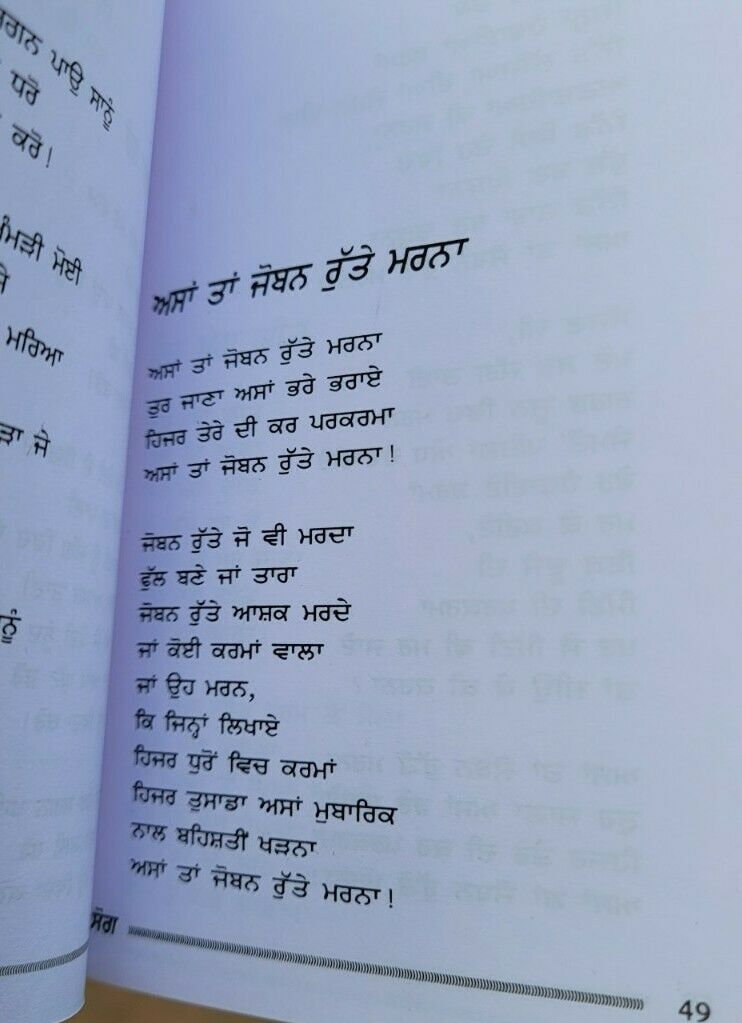 ਗਨ ਪਾਉ ਸਾਨੂੰ
ਧਰੋ
ਕਰੋ!
ਮੋਈ
ਮਰਿਆ
ਜੋ
ਅਸਾਂ ਤਾਂ ਜੋਬਨ ਰੁੱਤੇ ਮਰਨਾ
ਅਸਾਂ ਤਾਂ ਜੋਬਨ ਰੁੱਤੇ ਮਰਨਾ
ਤੁਰ ਜਾਣਾ ਅਸਾਂ ਭਰੇ ਭਰਾਏ
ਹਿਜਰ ਤੇਰੇ ਦੀ ਕਰ ਪਰਕਰਮਾ
ਅਸਾਂ ਤਾਂ ਜੋਬਨ ਰੁੱਤੇ ਮਰਨਾ!
ਜੋਬਨ ਰੁੱਤੇ ਜੋ ਵੀ ਮਰਦਾ
ਫੁੱਲ ਬਣੇ ਜਾਂ ਤਾਰਾ
ਜੋਬਨ ਰੁੱਤੇ ਆਸ਼ਕ ਮਰਦੇ
ਜਾਂ ਕੋਈ ਕਰਮਾਂ ਵਾਲਾ
ਜਾਂ ਉਹ ਮਰਨ,
ਕਿ ਜਿਨ੍ਹਾਂ ਲਿਖਾਏ
ਹਿਜਰ ਧੁਰੋਂ ਵਿਚ ਕਰਮਾਂ
ਹਿਜਰ ਤੁਸਾਡਾ ਅਸਾਂ ਮੁਬਾਰਿਕ
ਨਾਲ ਬਹਿਸ਼ਤੀਂ ਖੜਨਾ
ਅਸਾਂ ਤਾਂ ਜੋਬਨ ਰੁੱਤੇ ਮਰਨਾ!
49